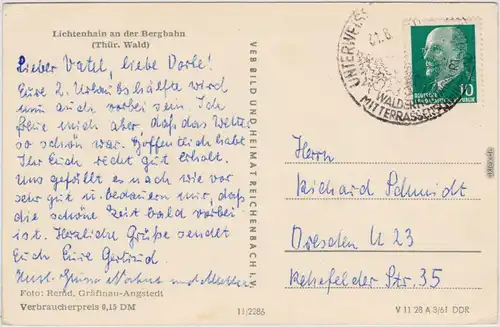 Lichtenhain an der Bergbahn
(Thür. Wald)
Lieber Vatel, liebe Dorle!
Eure 2. Urlaubshälfte wird
nun auch vorbei sein. Ich
freue mich aber, daß das Wetter
so schön war. Hoffentlich habt
Ihr Euch recht gut erholt.
Uns gefällt es nach wie vor
sehr gut u. bedauern wir, daß
die schöne Zeit bald vorbei
ist. Herzliche Grüße sendet
Euch Eure Gertrud.
Foto: Remd, Gräfinau-Angstedt
Verbraucherpreis 0,15 DM
VEB BILD UND HEIMAT REICHENBACH I. V.
11/2286
UNTERWEISS
WALDSCH
MITTERRASSEN
10
Herrn
Richard Schmidt
Dresden N 23
Rehefelder Str. 35
V 11 28 A 3/61 DDR